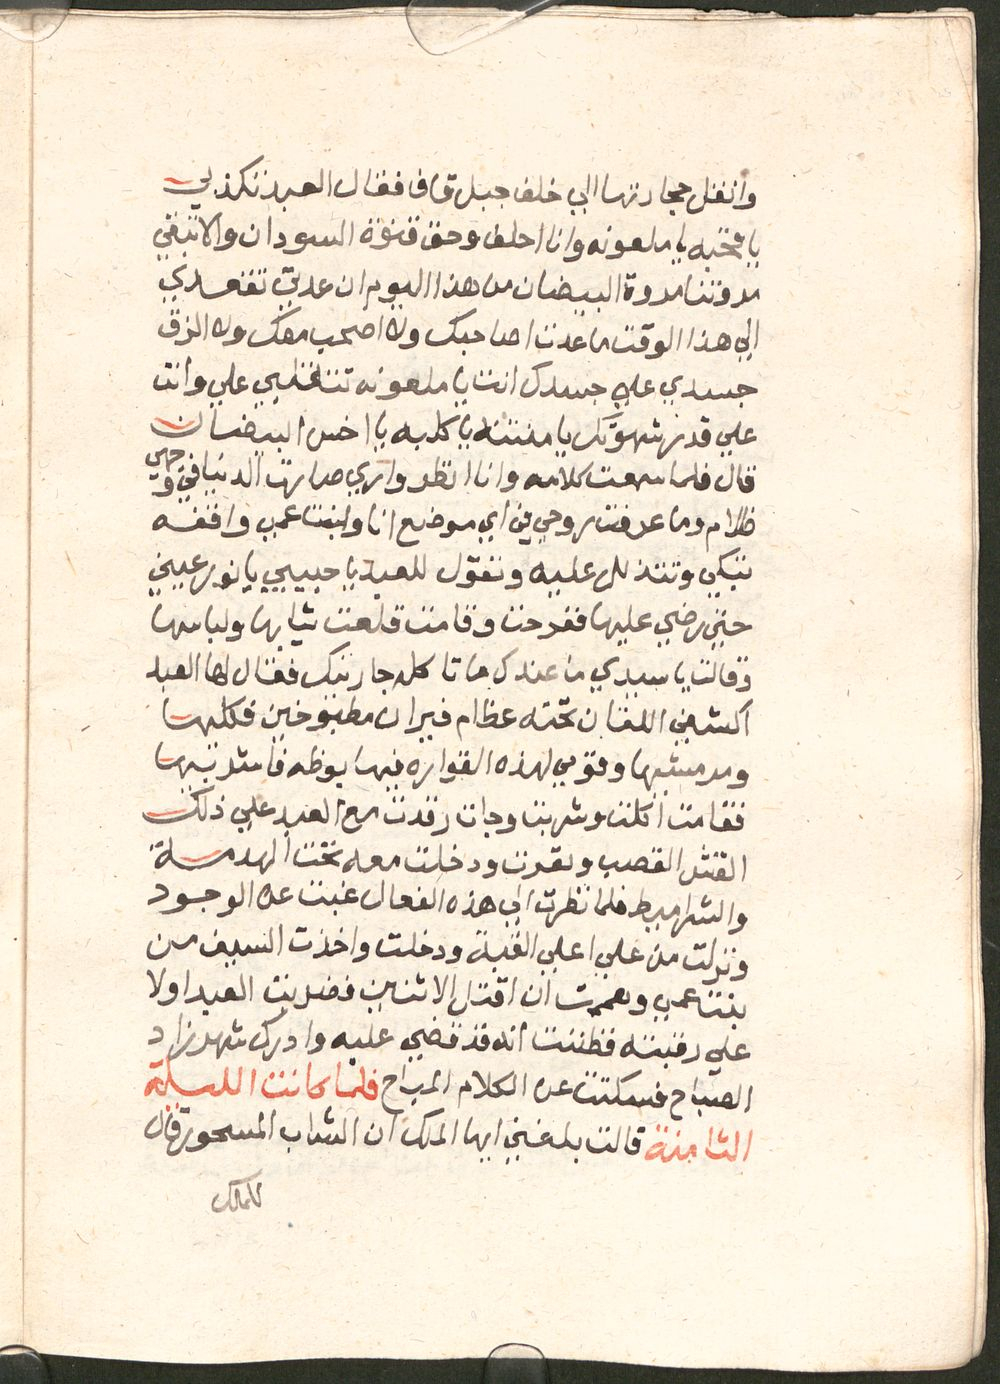 وانقل حجارتها الي خلف جبل قاف فقال العبد تكذبي
يا قحبه يا ملعونه وانا احلف وحق فتوة السودان والا تبقي
مروتنا مروة البيضان من هذا اليوم ان عدتي تقعدي
الي هذا الوقت ما عدت اصاحبك ولا اصحب معك ولا الزق
جسدي علي جسدك انت يا ملعونه تتغلبي علي وانت
علي قدر شهوتك يا منتنه يا كلبه يا اخس البيضان
قال فلما سمعت كلامه وانا انظر واري صارت الدنيا في وجهي
ظلام وما عرفت روحي في اي موضع انا وبنت عمي واقفه
تبكي وتتذلل عليه وتقول للعبد يا حبيبي يا نور عيني
حتي رضي عليها ففرحت وقامت قلعت ثيابها ولباسها
وقالت يا سيدي ما عندك ما تاكله جاريتك فقال لها العبد
اكشفي اللقان تحته عظام فيران مطبوخين فكليها
ومرمشيها وقومي لهذه القواره فيها بوظه فاشربيها
فقامت اكلت وشربت وجات رقدت مع العبد علي ذلك
القش القصب وتعرت ودخلت معه تحت الهدمه
والشراميط فلما نظرت الي هذه الفعال غبت عن الوجود
ونزلت من علي اعلي القبة ودخلت واخذت السيف من
بنت عمي وهميت ان اقتل الاثنين فضربت العبد اولا
علي رقبته فظننت انه قد قضي عليه وادرك شهرزاد
الصباح فسكتت عن الكلام المباح فلما كانت الليلة
الثامنة قالت بلغني ايها الملك ان الشاب المسحور قال
للملك